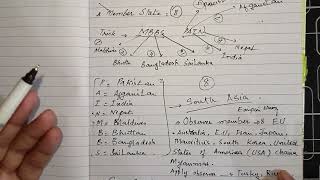 * Member State = (8)
Afganistan
Trick → MBBS PAIN
Maldives
Nepal
India
Bhutan Bangladesh SriLanka
P = Pakistan
A = Afganistan
I = India
N = Nepal
M = Maldives
B = Bhuttan
B = Bangladesh
S = SriLanka
(8)
→ South Asia
→ Observe member → 8 EU
Australia, E.U, Iran, Japan,
Mauritius, South Korea, United
State of America (USA) China
Myanmar.
Apply observe → Turky, Rus